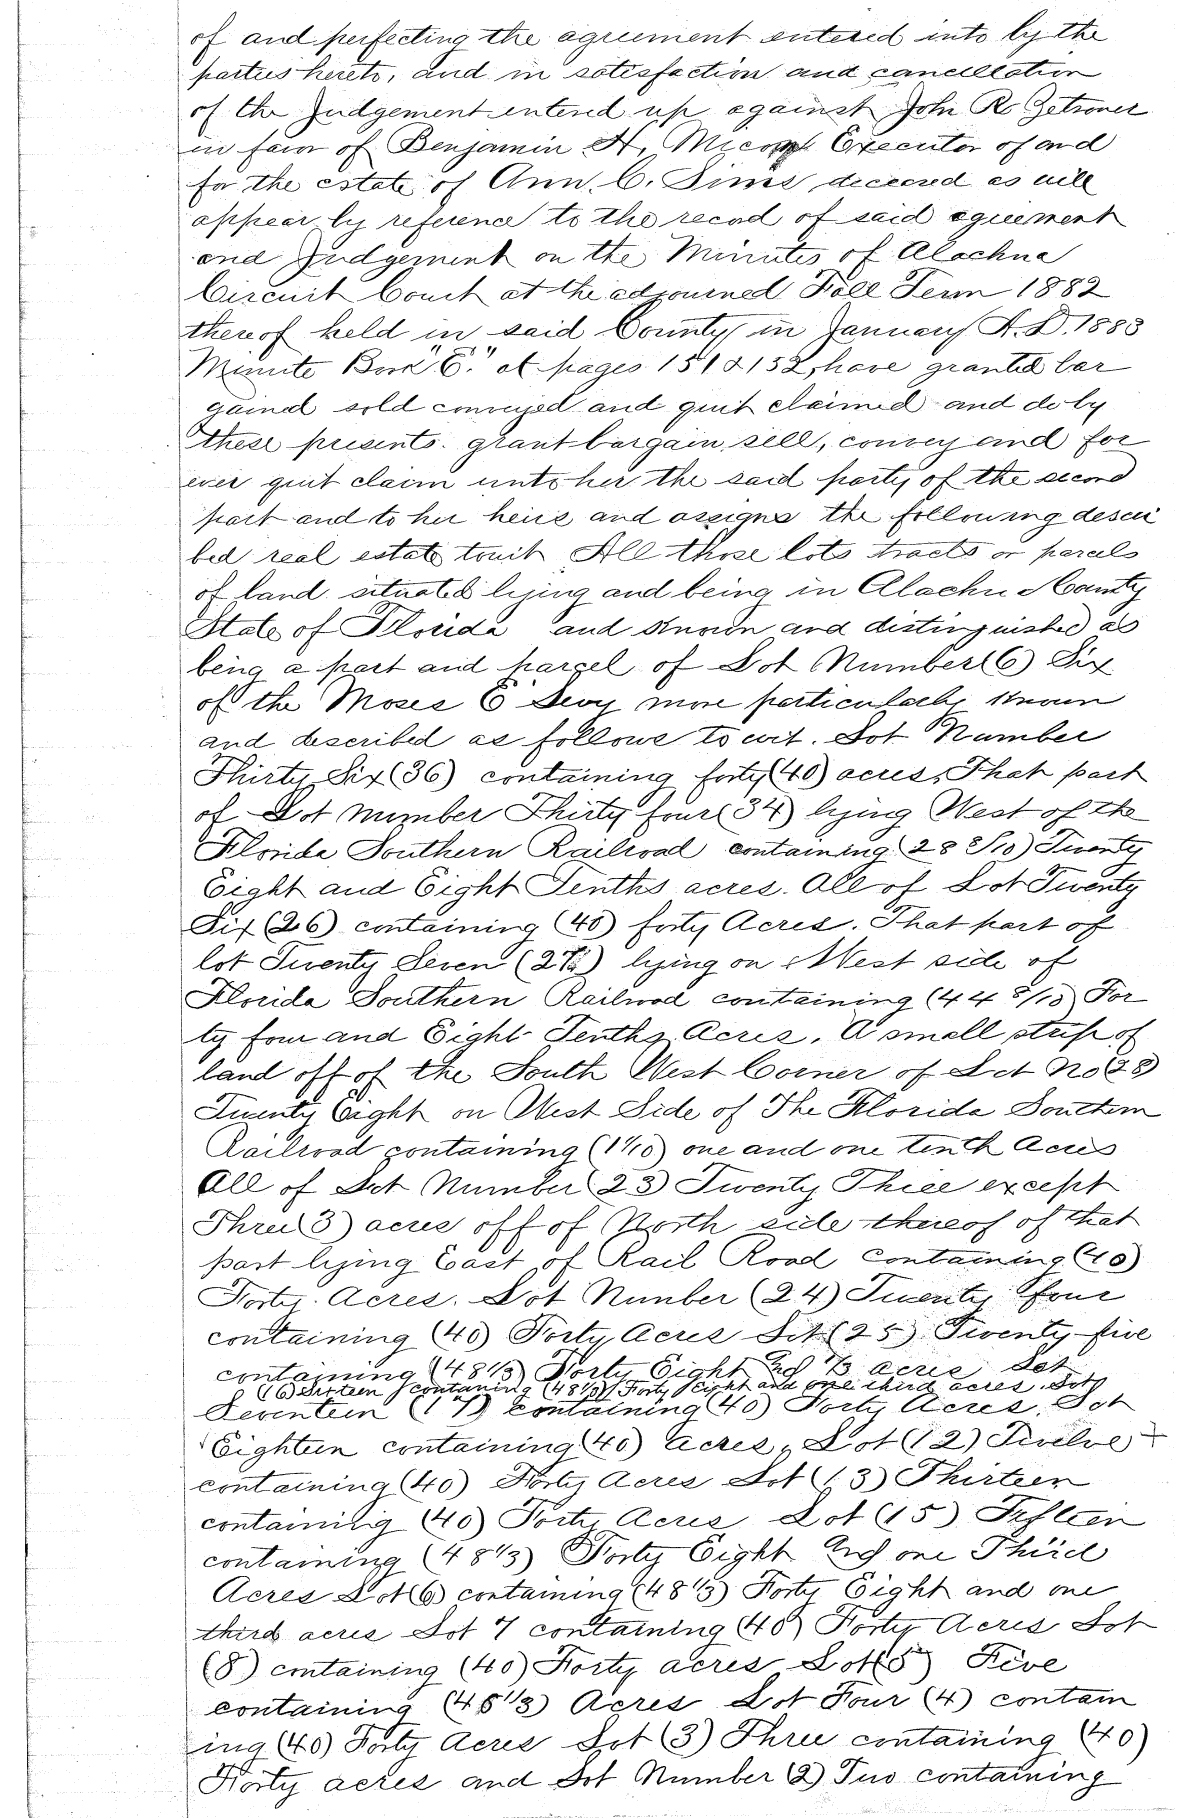 of and perfecting the agreement entered into by the
parties hereto, and in satisfaction and cancellation
of the Judgement entered up against John R. Zetrouer
in favor of Benjamin H. Micou Executor of and
for the estate of Ann C. Sims deceased as will
appear by reference to the record of said agreement
and Judgement on the Minutes of Alachua
Circuit Court at the adjourned Fall Term 1882
thereof held in said County in January A.D. 1883
Minute Book "E." at pages 151 & 152, have granted bar
gained sold conveyed and quit claimed and do by
these presents grant bargain, sell, convey and for
ever quit claim unto her the said party of the second
part and to her heirs and assigns the following descri
bed real estate towit All those lots tracts or parcels
of land situated lying and being in Alachua County
State of Florida and known and distinguished as
being a part and parcel of Lot Number (6) Six
of the Moses E Levy more particularly known
and described as follows to wit. Lot Number
Thirty Six (36) containing forty (40) acres, That part
of Lot number Thirty four (34) lying West of the
Florida Southern Railroad containing (28 8/10) Twenty
Eight and Eight Tenths acres. All of Lot Twenty
Six (26) containing (40) forty Acres. That part of
lot Twenty Seven (27) lying on West side of
Florida Southern Railroad containing (44 8/10) For
ty four and Eight Tenths Acres. A small strip of
land off of the South West Corner of Lot No (28)
Twenty Eight on West Side of The Florida Southern
Railroad containing (1 1/10) one and one tenth Acres
All of Lot Number (23) Twenty Three except
Three (3) acres off of North side thereof of that
part lying East of Rail Road containing (40)
Forty Acres. Lot Number (24) Twenty four
containing (40) Forty Acres Lot (25) Twenty five
containing (48 1/3) Forty Eight and 1/3 acres Lot
(16) Sixteen containing (48 1/3) Forty Eight and one third acres. Lot
Seventeen (17) containing (40) Forty Acres, Lot
Eighteen containing (40) Acres, Lot (12) Twelve
containing (40) Forty Acres Lot (13) Thirteen
containing (40) Forty Acres Lot (15) Fifteen
containing (48 1/3) Forty Eight and one Third
Acres Lot (6) containing (48 1/3) Forty Eight and one
third acres Lot 7 containing (40) Forty Acres Lot
(8) containing (40) Forty acres Lot (5) Five
containing (48 1/3) Acres Lot Four (4) contain
ing (40) Forty Acres Lot (3) Three containing (40)
Forty acres and Lot Number (2) Two containing